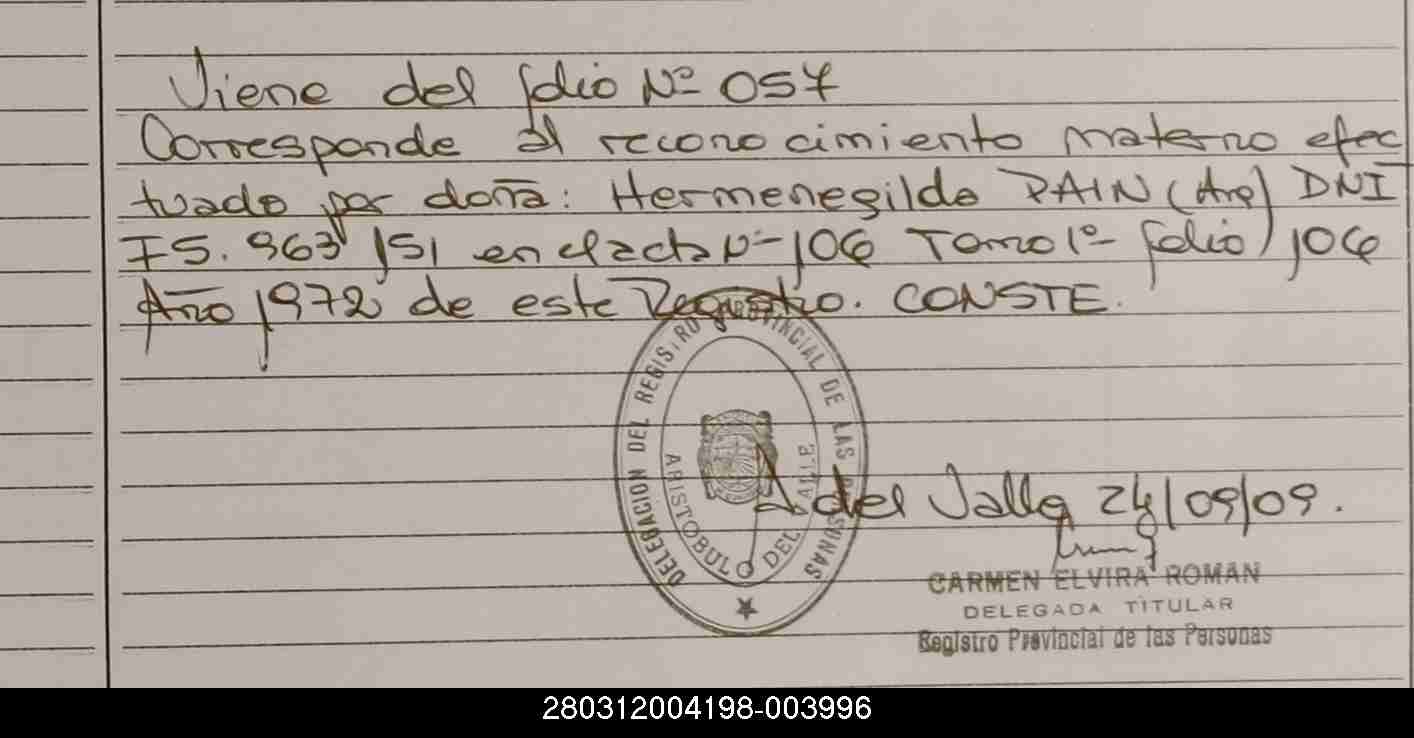 Viene del folio Nº 057
Corresponde al reconocimiento materno efec
tuado por doña: Hermenegilda PAIN (Arg) DNI
F5.963.151 en el acta Nº 106 Tomo 1º folio 106
Año 1972 de este Registro. CONSTE.
DELEGACION DEL REGISTRO PROVINCIAL DE LAS PERSONAS
ARISTOBULO DEL VALLE
A. del Valle 24/09/09.
CARMEN ELVIRA ROMAN
DELEGADA TITULAR
Registro Provincial de las Personas
280312004198-003996